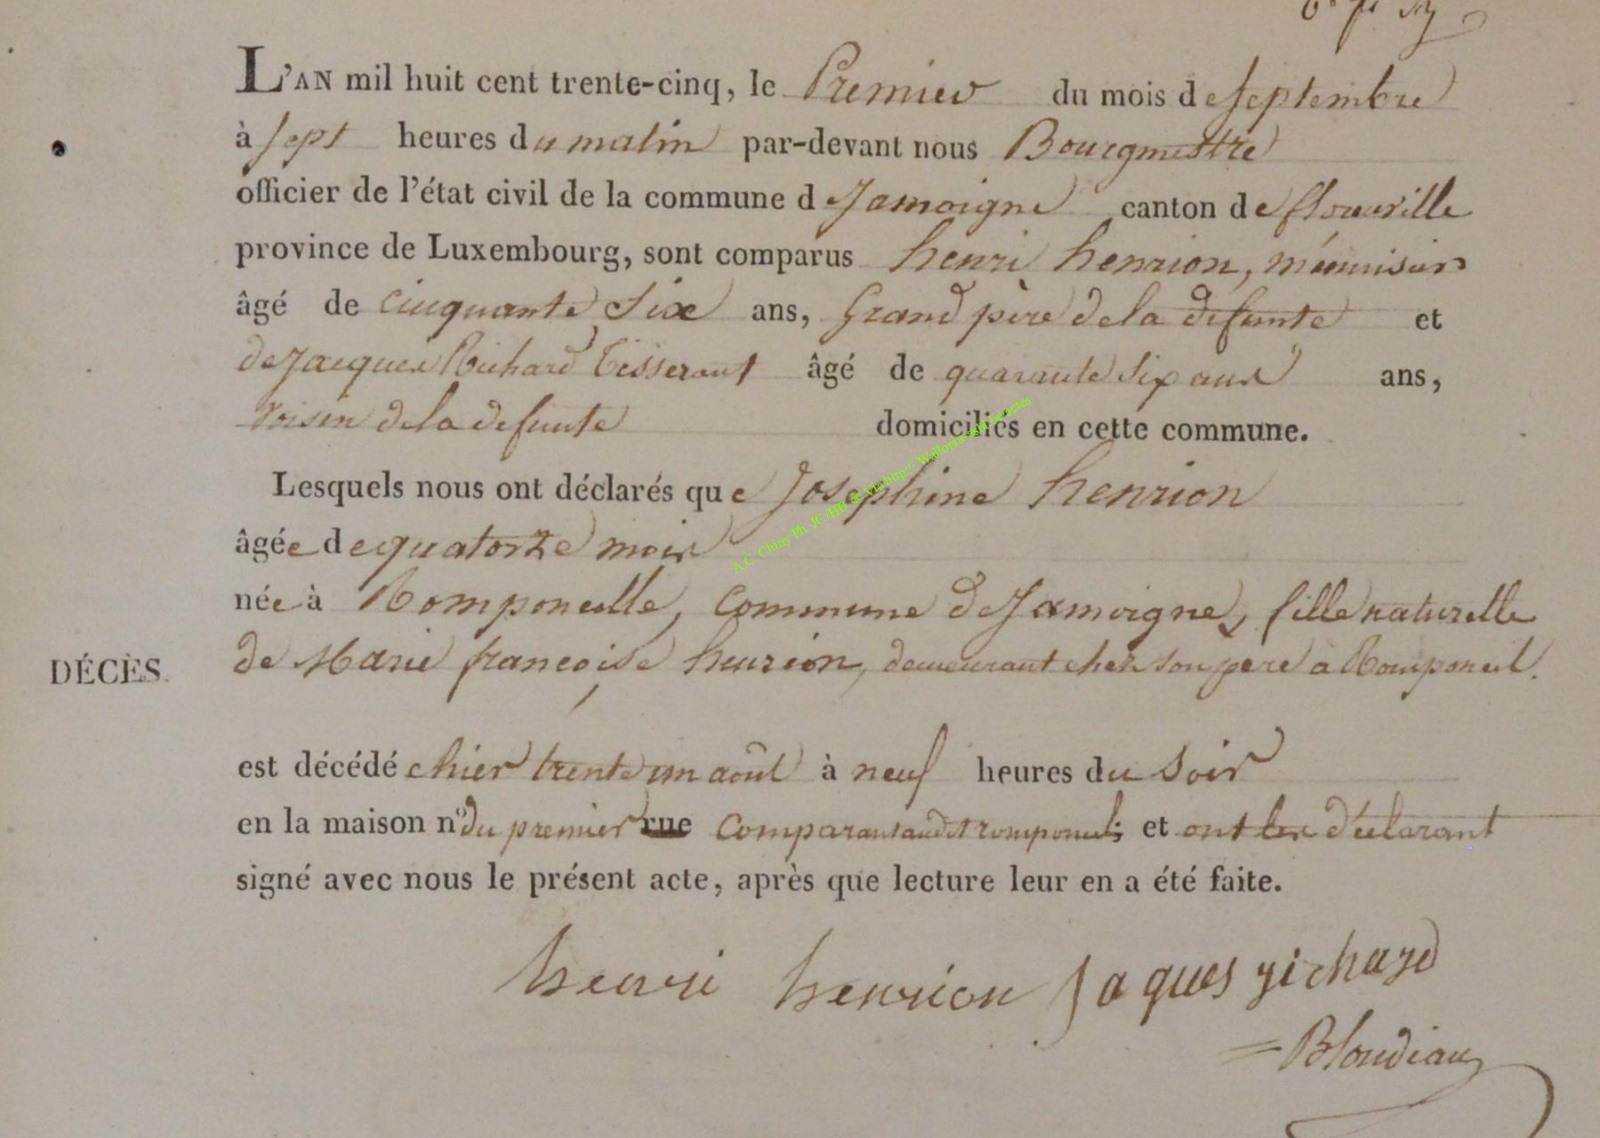 L'AN mil huit cent trente-cinq, le Premier du mois de septembre
à sept heures du matin par-devant nous Bourgmestre
officier de l'état civil de la commune d Jamoigne canton de florenville
province de Luxembourg, sont comparus henri henrion, ménuisier
âgé de cinquante Six ans, Grand père de la defunte et
de Jacques Richard Tisserant âgé de quarante Six ans ans,
voisin de la defunte domiciliés en cette commune.
Lesquels nous ont déclarés que Josephine henrion
âgée de quatorze mois
née à Romponcelle, commune de Jamoigne, fille naturelle
DÉCÈS. de Marie françoise henrion, demeurant chez son pere à Romponcel.
est décédée hier trente un août à neuf heures du soir
en la maison n° du premier rue comparant audit et ont les déclarant
signé avec nous le présent acte, après que lecture leur en a été faite.
henri henrion Jaques richard
Blondiau